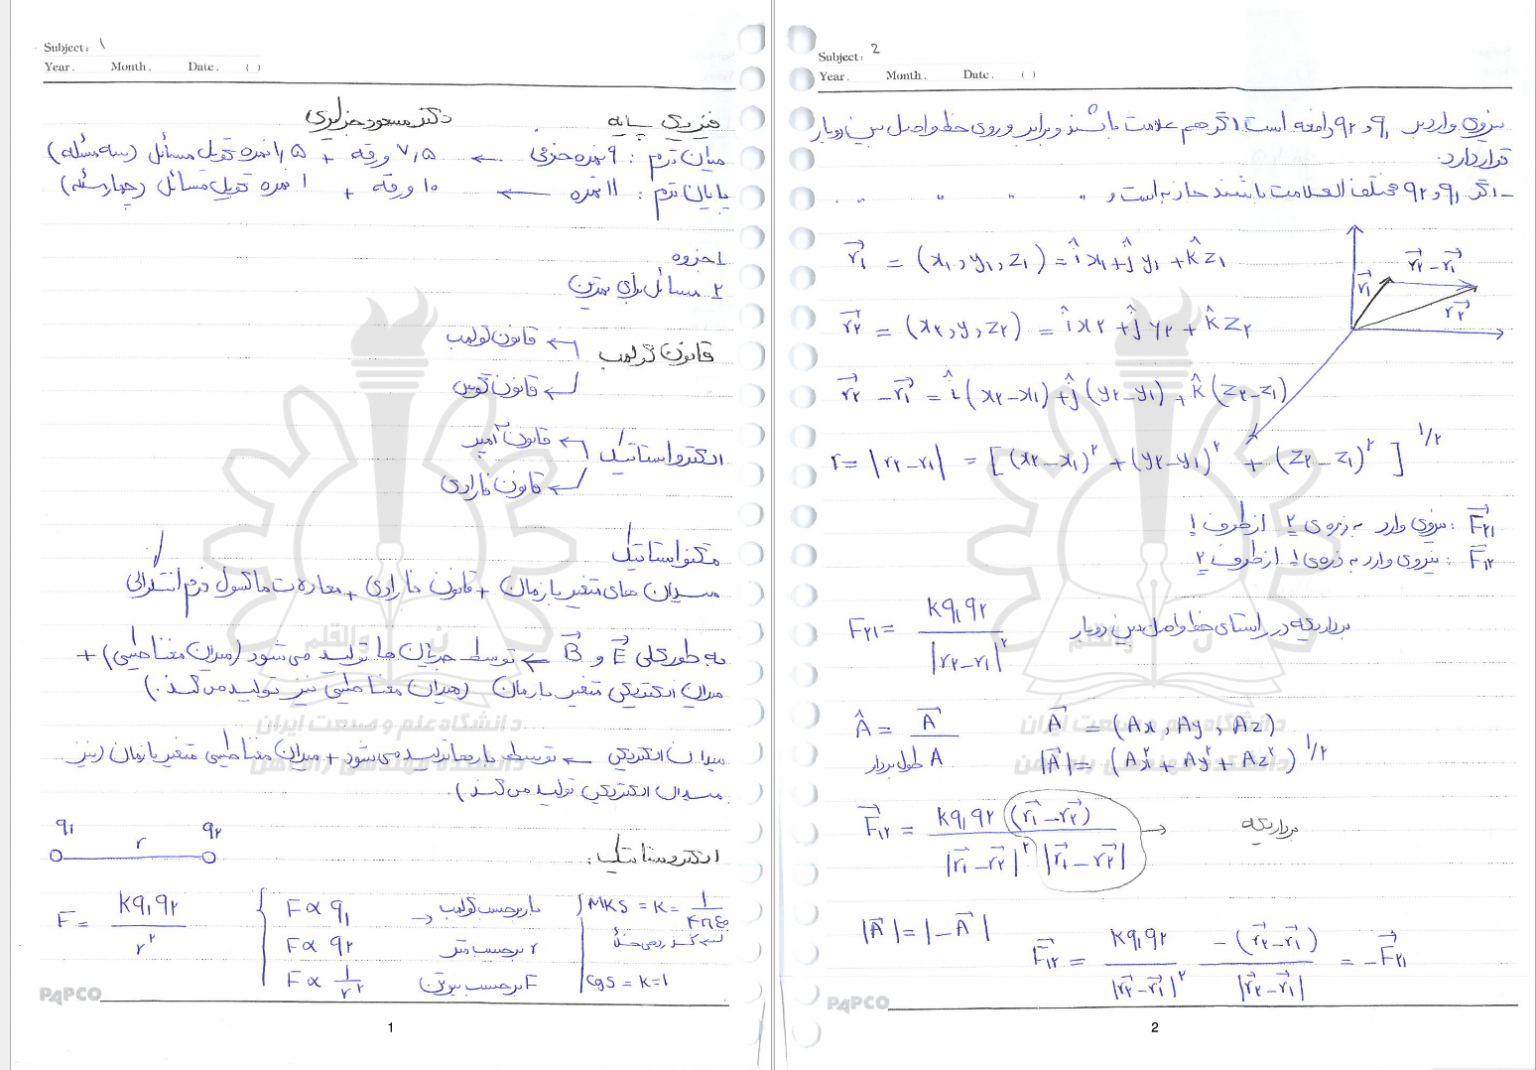 Subject: ۱
Year. Month. Date. ( )
فیزیک پایه دکتر مسعود
میان ترم : ۹ نمره جزئی ← ۷,۵ ورقه + ۱,۵ نمره تحویل مسائل (سه مسئله)
پایان ترم : ۱۱ نمره ← ۱۰ ورقه + ۱ نمره تحویل مسائل (چهار مسئله)
۱ جزوه
۲ مسائل برای تمرین
قانون کولمب ← قانون کولمب
← قانون گوس
الکترواستاتیک ← قانون آمپر
← قانون فارادی
مگنواستاتیک
میدان های متغیر با زمان + قانون فارادی + معادلات ماکسول فرم انتگرالی
به طور کلی E⃗ و B⃗ ← توسط جریان ها تولید می شود (میدان مغناطیسی) +
میدان الکتریکی متغیر با زمان (میدان مغناطیسی نیز تولید می کند.)
میدان الکتریکی ← توسط بارها تولید می شود + میدان مغناطیسی متغیر با زمان (نیز
میدان الکتریکی تولید می کند).
q₁ r q₂
الکتروستاتیک :
F = kq₁q₂ / r² { F ∝ q₁ بار برحسب کولمب → MKS = K = 1/4πε₀
F ∝ q₂ r برحسب متر
F ∝ 1/r² F برحسب نیوتن CGS = K = 1
PAPCO
1
Subject: 2
Year. Month. Date. ( )
نیروی وارد بر q₁ و q₂ دافعه است اگر هم علامت باشند و برابر و روی خط واصل بین دو بار
قرار دارد.
- اگر q₁ و q₂ مختلف العلامت باشند جاذبه است و " " " "
r⃗₁ = (x₁, y₁, z₁) = îx₁ + ĵy₁ + k̂z₁
r⃗₂ = (x₂, y, z₂) = îx₂ + ĵy₂ + k̂z₂
r⃗₁ r⃗₂ - r⃗₁ r⃗₂
r⃗₂ - r⃗₁ = î(x₂-x₁) + ĵ(y₂-y₁) + k̂(z₂-z₁)
r = |r₂-r₁| = [(x₂-x₁)² + (y₂-y₁)² + (z₂-z₁)²]^1/2
F⃗₂₁ : نیروی وارد به ذره ی ۲ از طرف ۱
F⃗₁₂ : نیروی وارد به ذره ی ۱ از طرف ۲
F₂₁ = kq₁q₂ / |r₂-r₁|² بردار یکه در راستای خط واصل بین دو بار
Â = A⃗ / طول بردار A A⃗ = (Ax, Ay, Az)
|A⃗| = (Ax² + Ay² + Az²)^1/2
F⃗₁₂ = kq₁q₂ (r⃗₁-r⃗₂) / |r⃗₁-r⃗₂|² |r⃗₁-r⃗₂| → بردار یکه
|A⃗| = |-A⃗| F⃗₁₂ = kq₁q₂ / |r⃗₂-r⃗₁|² -(r⃗₂-r⃗₁) / |r⃗₂-r⃗₁| = -F⃗₂₁
PAPCO
2
ن والقلم
دانشگاه علم و صنعت ایران